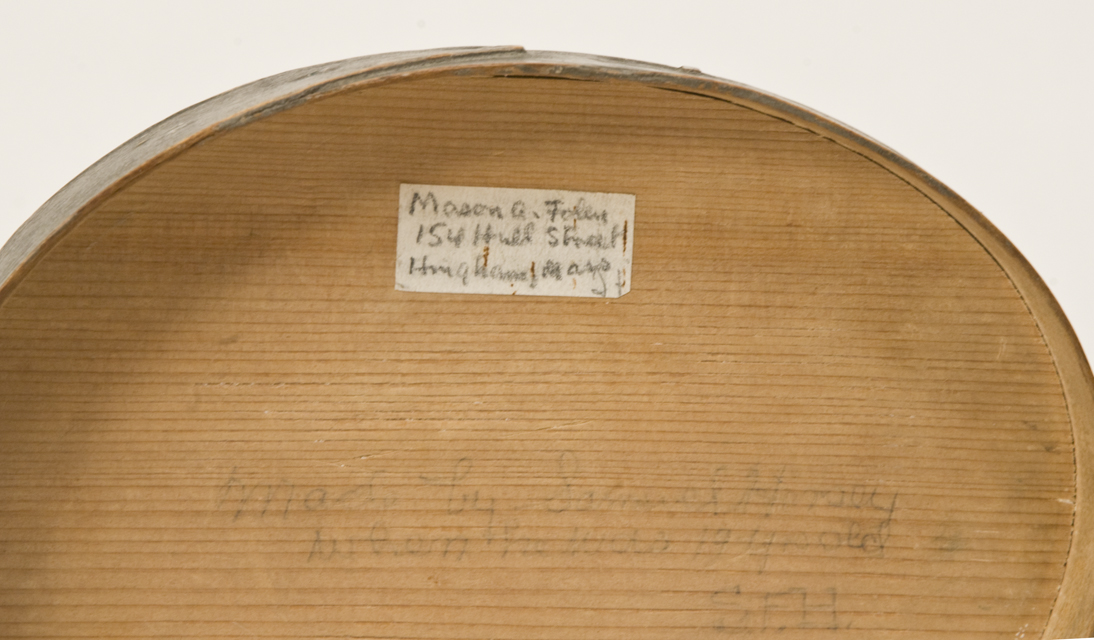 Mason A. Foley
154 Hull Street
Hingham, Mass
Made by Samuel Hersey
when he was 19 y old
S.F.H.